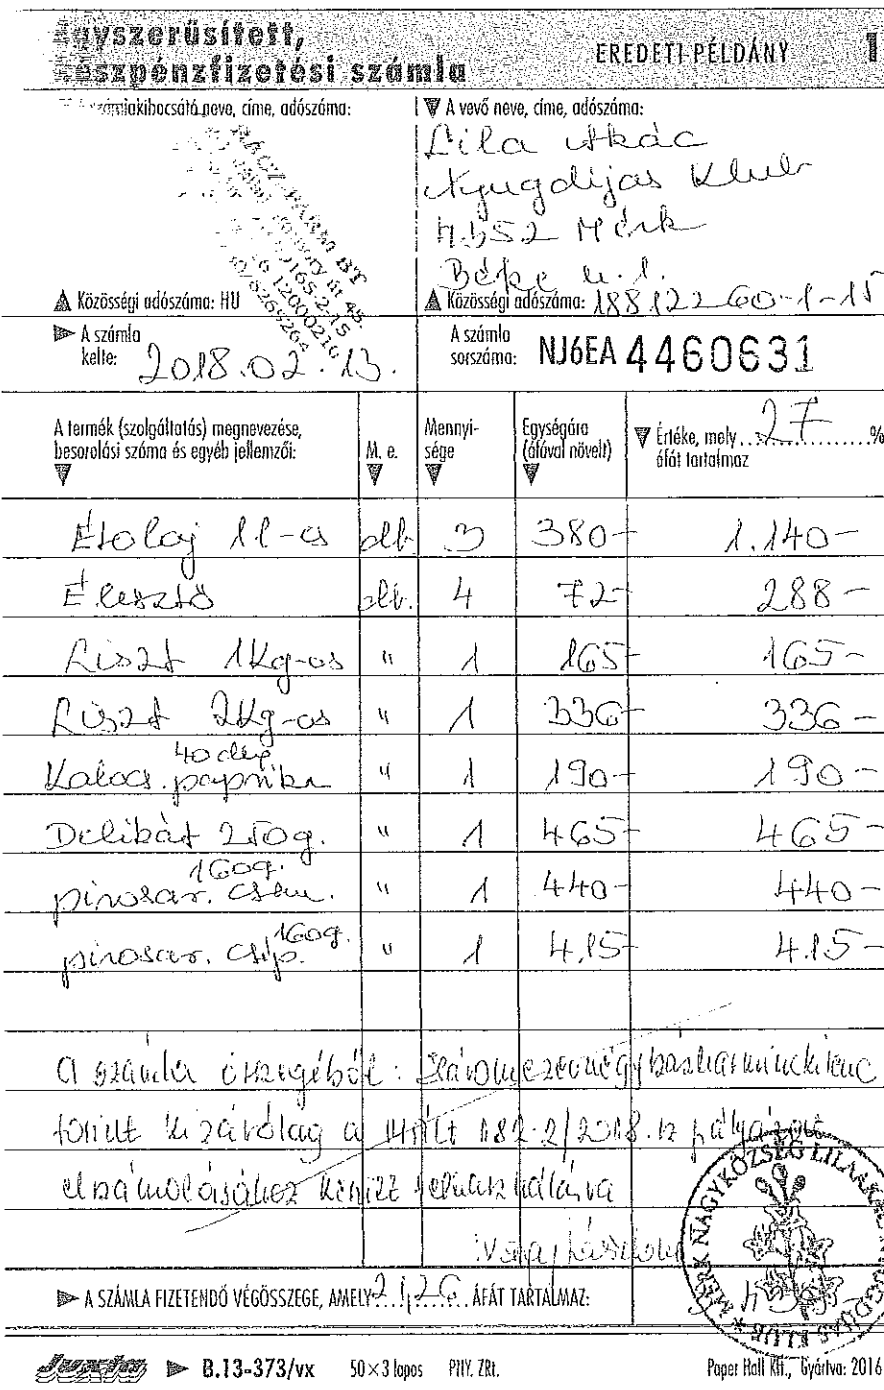 Egyszerűsített,
készpénzfizetési számla
EREDETI PÉLDÁNY 1
számlakibocsátó neve, címe, adószáma:
A vevő neve, címe, adószáma:
Lila Akác
Nyugdíjas Klub
4352 Mérk
Béke u. 1.
Közösségi adószáma: HU
Közösségi adószáma: 18812260-1-15
A számla
kelte: 2018.02.13.
A számla
sorszáma: NJ6EA 4460631
A termék (szolgáltatás) megnevezése,
besorolási száma és egyéb jellemzői:
M. e.
Mennyi-
sége
Egységára
(áfával növelt)
Értéke, mely 27 %
áfát tartalmaz
Étolaj 1l-es db. 3 380- 1.140-
Élesztő db. 4 72- 288-
Liszt 1Kg-os " 1 165- 165-
Liszt 2Kg-os " 1 336- 336-
40 dkg
Kalocs. paprika " 1 190- 190-
Delikát 250g. " 1 465- 465-
160g.
pirosar. csem. " 1 440- 440-
pirosar. csíp. 160g. " 1 415- 415-
A számla összegéből: Háromezernégyszázharminckilenc
forint kizárólag a 182-2/2018. sz pályázat
elszámolásához került felhasználásra
A SZÁMLA FIZETENDŐ VÉGÖSSZEGE, AMELY 21,26 ÁFÁT TARTALMAZ:
MÉRK NAGYKÖZSÉG LILAAKÁC NYUGDÍJAS KLUB
B.13-373/vx 50×3 lapos PNY. ZRt.
Paper Hall Kft., Gyártva: 2016